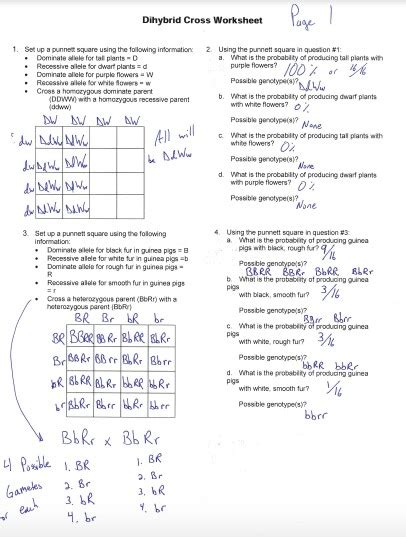 Dihybrid Cross Worksheet
Page 1
1. Set up a punnett square using the following information:
• Dominate allele for tall plants = D
• Recessive allele for dwarf plants = d
• Dominate allele for purple flowers = W
• Recessive allele for white flowers = w
• Cross a homozygous dominate parent
(DDWW) with a homozygous recessive parent
(ddww)
DW DW DW DW
dw DdWw DdWw
dw DdWw DdWw
dw DdWw DdWw
dw DdWw DdWw
All will
be DdWw
2. Using the punnett square in question #1:
a. What is the probability of producing tall plants with
purple flowers? 100% or 16/16
Possible genotype(s)? DdWw
b. What is the probability of producing dwarf plants
with white flowers? 0%
Possible genotype(s)? None
c. What is the probability of producing tall plants with
white flowers? 0%
Possible genotype(s)? None
d. What is the probability of producing dwarf plants
with purple flowers? 0%
Possible genotype(s)? None
3. Set up a punnett square using the following
information:
• Dominate allele for black fur in guinea pigs = B
• Recessive allele for white fur in guinea pigs =b
• Dominate allele for rough fur in guinea pigs =
R
• Recessive allele for smooth fur in guinea pigs
= r
• Cross a heterozygous parent (BbRr) with a
heterozygous parent (BbRr)
BR Br bR br
BR BBRR BBRr BbRR BbRr
Br BBRr BBrr BbRr Bbrr
bR BbRR BbRr bbRR bbRr
br BbRr Bbrr bbRr bbrr
BbRr x BbRr
4 Possible
Gametes
for each
1. BR
2. Br
3. bR
4. br
1. BR
2. Br
3. bR
4. br
4. Using the punnett square in question #3:
a. What is the probability of producing guinea
pigs with black, rough fur? 9/16
Possible genotype(s)?
BBRR BBRr BbRR BbRr
b. What is the probability of producing guinea
pigs
with black, smooth fur? 3/16
Possible genotype(s)?
BBrr Bbrr
c. What is the probability of producing guinea
pigs
with white, rough fur? 3/16
Possible genotype(s)?
bbRR bbRr
d. What is the probability of producing guinea
pigs
with white, smooth fur? 1/16
Possible genotype(s)?
bbrr